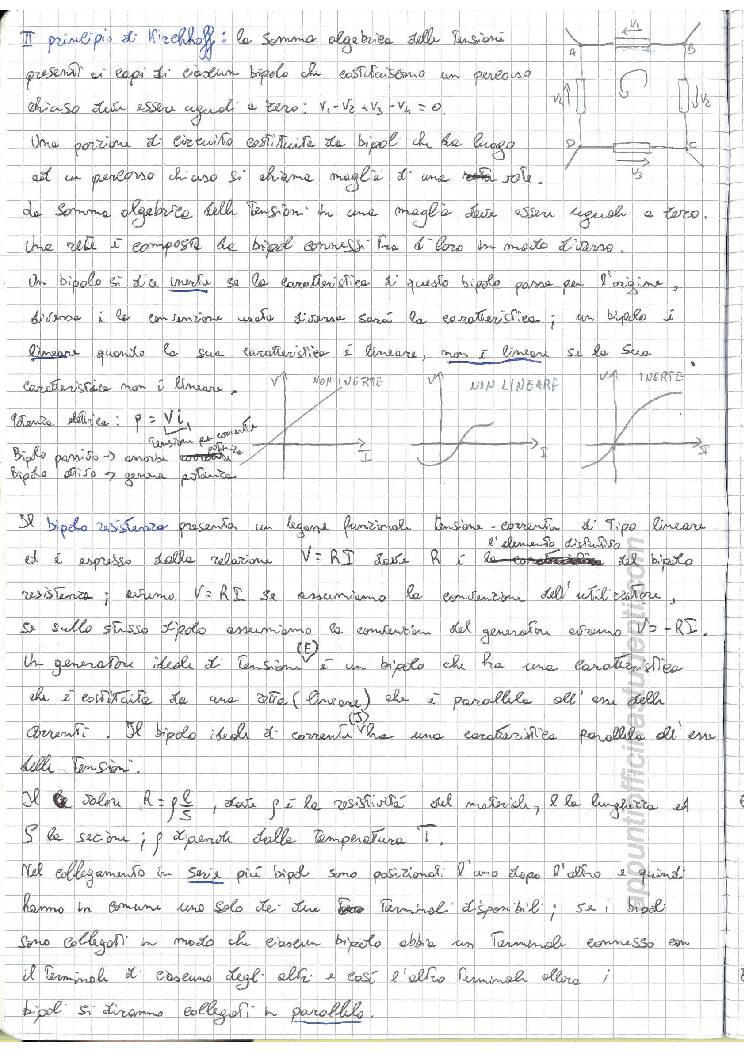 II principio di Kirchhoff: la somma algebrica delle tensioni
presenti ai capi di ciascun bipolo che costituiscono un percorso
chiuso deve essere uguale a zero: V1-V2+V3-V4=0.
V1
A
B
V4
V2
D
C
V3
Una porzione di circuito costituita da bipoli che ha luogo
ad un percorso chiuso si chiama maglia di una rete.
La somma algebrica delle tensioni in una maglia deve essere uguale a zero.
Una rete è composta da bipoli connessi fra di loro in modo diverso.
Un bipolo si dice inerte se la caratteristica di questo bipolo passa per l'origine,
diversa è la convenzione usata diversa sarà la caratteristica; un bipolo è
lineare quando la sua caratteristica è lineare, non è lineare se la sua
caratteristica non è lineare.
V
NON INERTE
I
V
NON LINEARE
I
V
INERTE
I
Potenza elettrica: p = Vi
tensione per corrente
Bipolo passivo → assorbe potenza
Bipolo attivo → genera potenza
Il bipolo resistenza presenta un legame funzionale tensione-corrente di tipo lineare
ed è espresso dalla relazione V=RI dove R è l'elemento distintivo del bipolo
resistenza; avremo V=RI se assumiamo la convenzione dell'utilizzatore,
se sullo stesso dipolo assumiamo la convenzione del generatore avremo V=-RI.
Un generatore ideale di tensione (E) è un bipolo che ha una caratteristica
che è costituita da una retta (lineare) che è parallela all'asse delle
correnti. Il bipolo ideale di corrente (J) ha una caratteristica parallela all'asse
delle tensioni.
Il valore R=ρ l/S, dove ρ è la resistività del materiale, l la lunghezza ed
S la sezione; ρ dipende dalla temperatura T.
Nel collegamento in serie più bipoli sono posizionati l'uno dopo l'altro e quindi
hanno in comune uno solo dei due terminali disponibili; se i bipoli
sono collegati in modo che ciascun bipolo abbia un terminale connesso con
il terminale di ciascuno degli altri e così l'altro terminale allora i
bipoli si diranno collegati in parallelo.
appuntiofficinastudenti.com